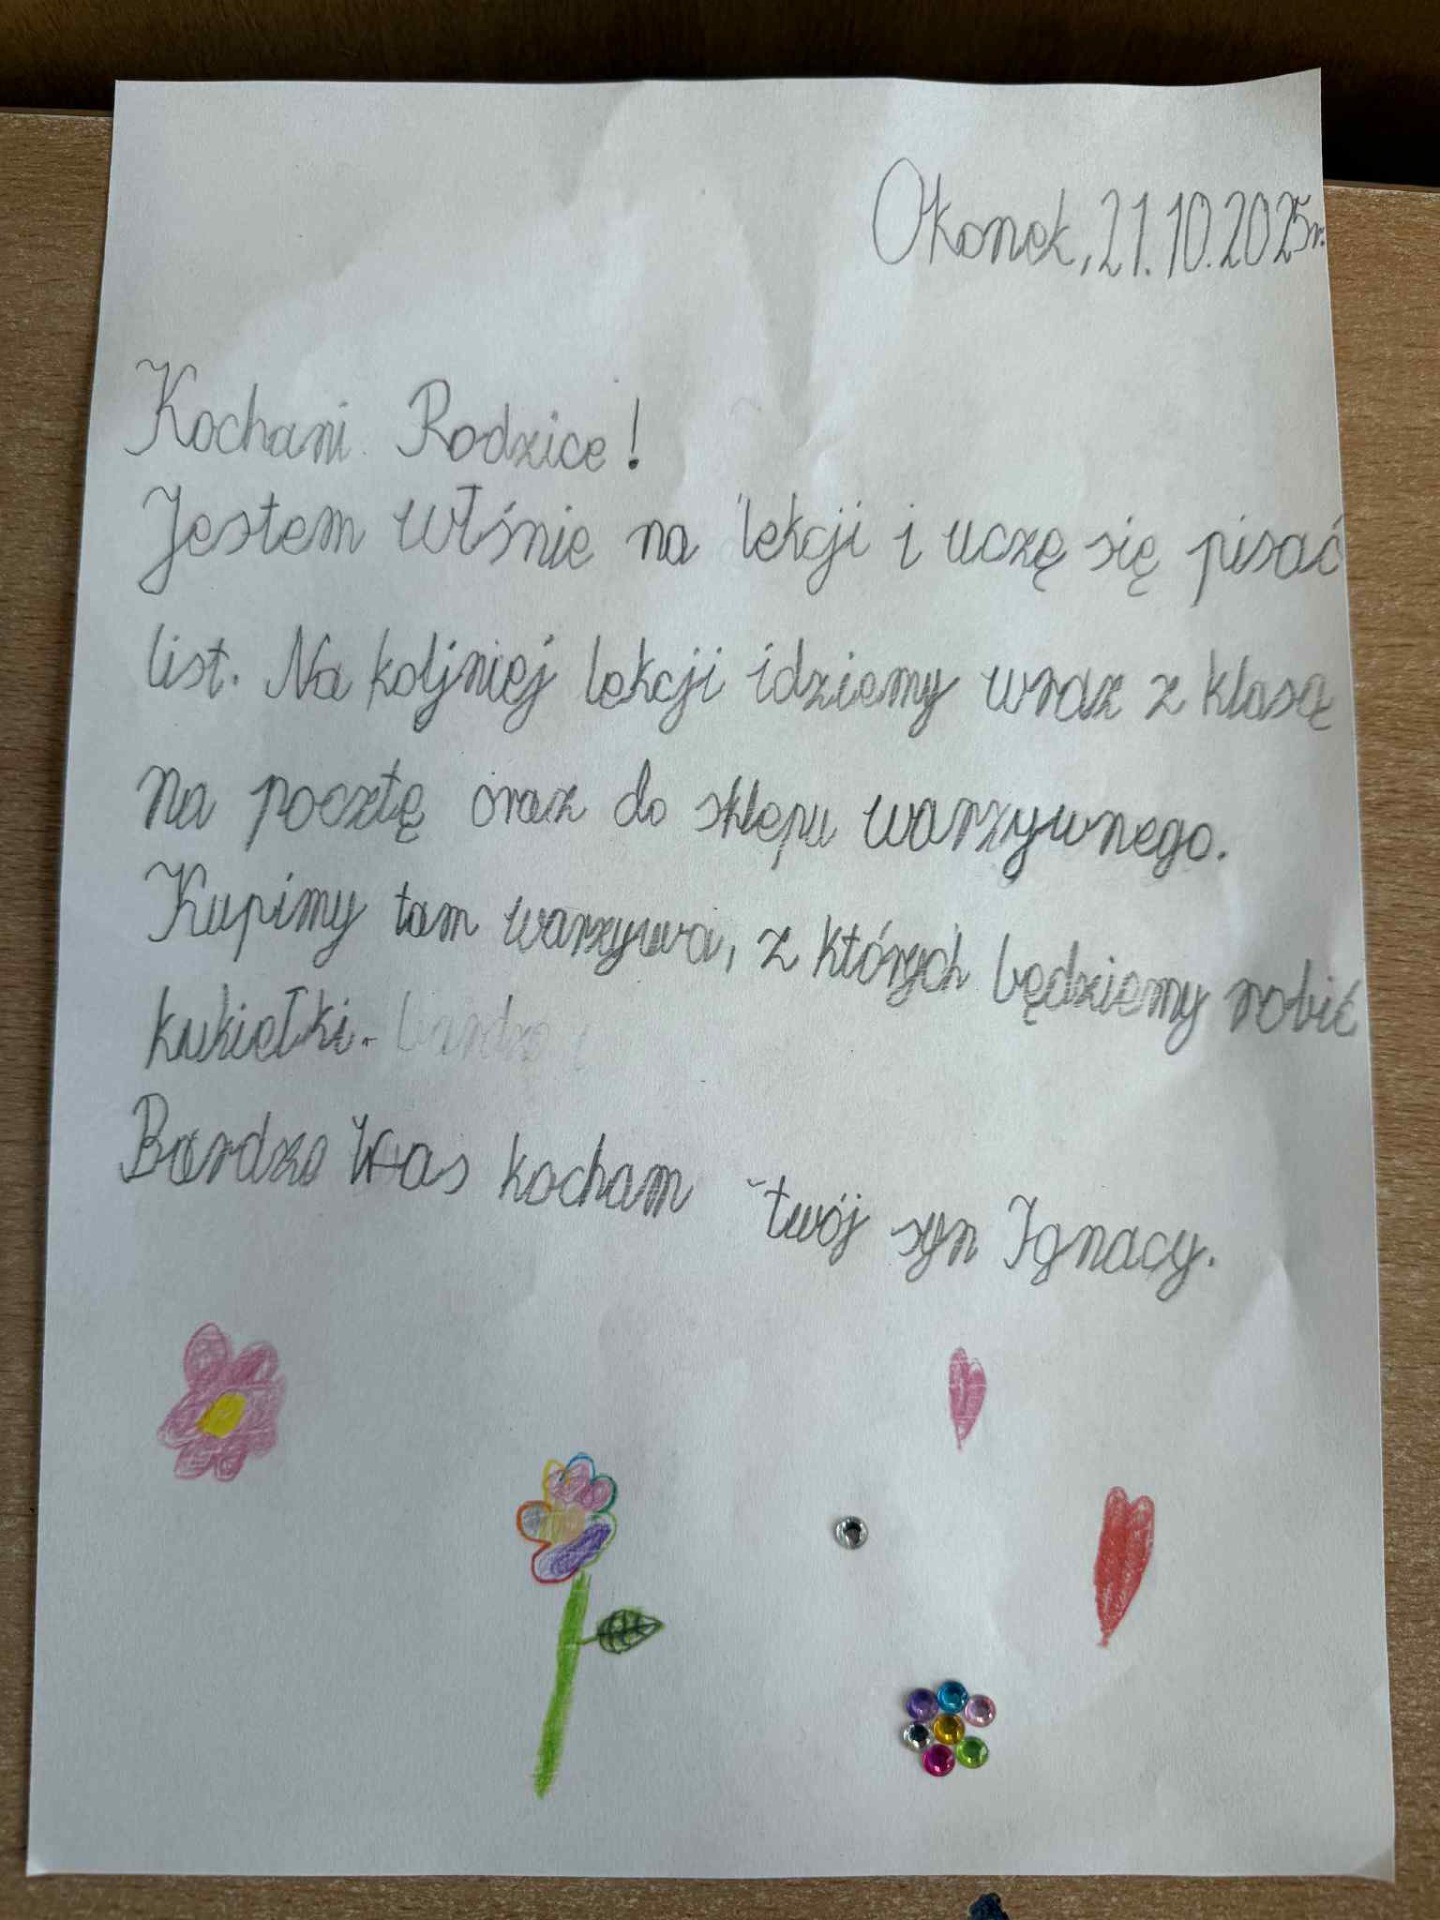 Okonek, 21.10.2025r.
Kochani Rodzice!
Jestem włśnie na lekcji i uczę się pisać
list. Na koljniej lekcji idziemy wraz z klasą
na pocztę oraz do sklepu warzywnego.
Kupimy tam warzywa, z których będziemy robić
kukiełki.
Bardzo Was kocham twój syn Ignacy.